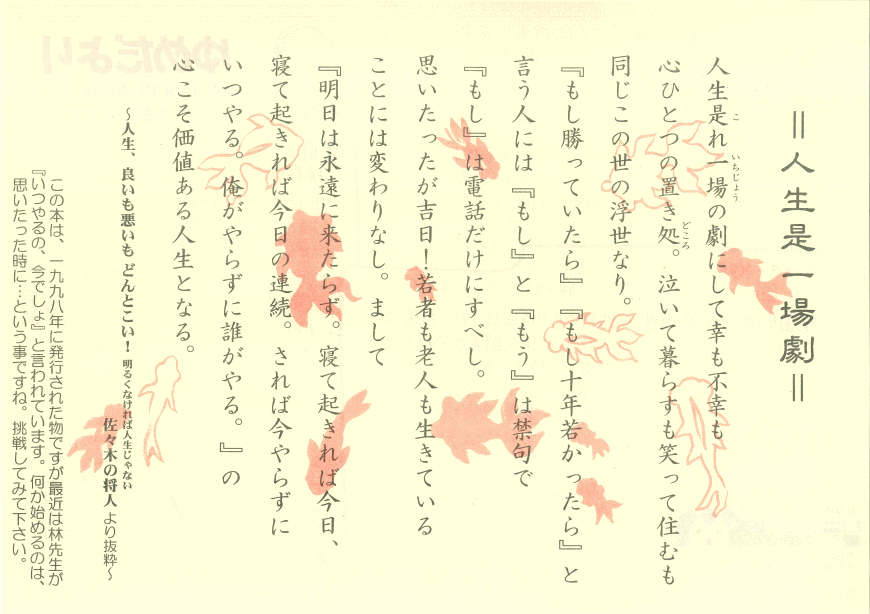 ＝人生是一場劇＝
人生是れ一場の劇にして幸も不幸も
心ひとつの置き処。泣いて暮らすも笑って住むも
同じこの世の浮世なり。
『もし勝っていたら』『もし十年若かったら』と
言う人には『もし』と『もう』は禁句で
『もし』は電話だけにすべし。
思いたったが吉日！若者も老人も生きている
ことには変わりなし。まして
『明日は永遠に来たらず。寝て起きれば今日、
寝て起きれば今日の連続。されば今やらずに
いつやる。俺がやらずに誰がやる。』の
心こそ価値ある人生となる。
～人生、良いも悪いも どんとこい！ 明るくなければ人生じゃない
佐々木の将人 より抜粋～
この本は、一九九八年に発行された物ですが最近は林先生が
『いつやるの、今でしょ』と言われています。何か始めるのは、
思いたった時に…という事ですね。挑戦してみて下さい。
こ
いちじょう
どころ
ゆめだより